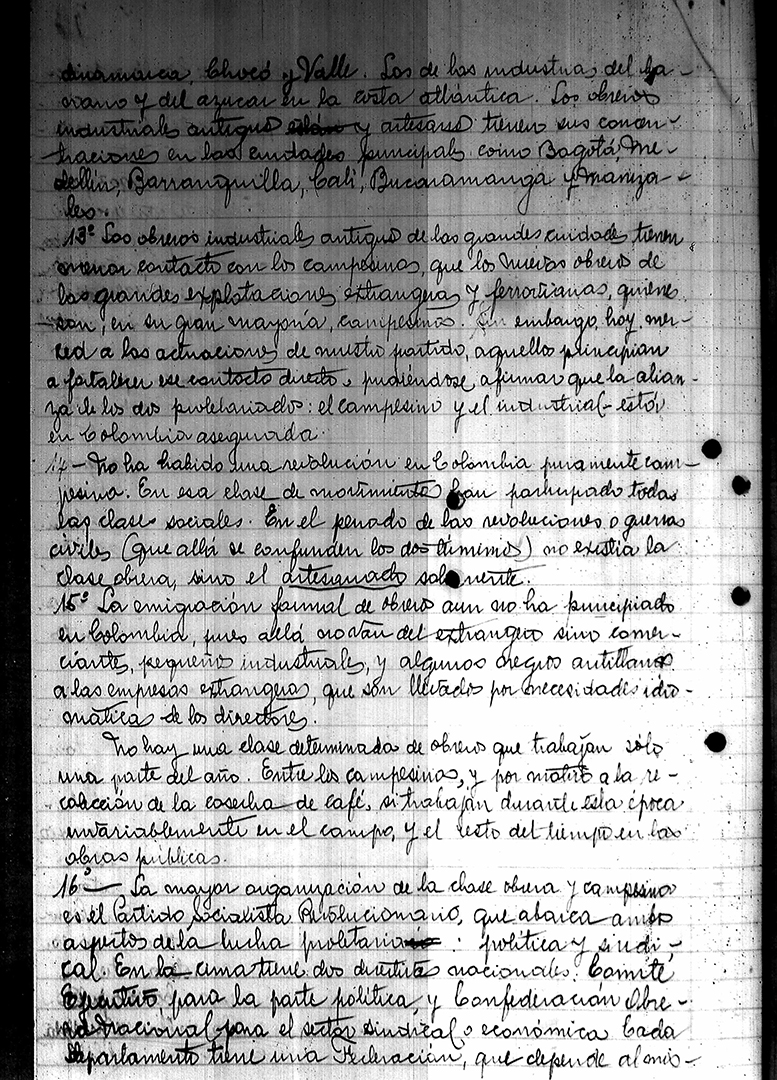 dinamarca, Chocó y Valle. Los de las industrias del ba-
nano y del azucar en la costa atlántica. Los obreros
industriales antiguos están y artesanos tienen sus concen-
traciones en las ciudades principales como Bogotá, Me-
dellin, Barranquilla, Cali, Bucaramanga y Maniza-
les.
13º Los obreros industriales antiguos de las grandes ciudades tienen
menor contacto con los campesinos, que los nuevos obreros de
las grandes explotaciones extrangeras y ferroviarias, quienes
son, en su gran mayoría, campesinos. Sin embargo, hoy, mer-
ced a las actuaciones de nuestro partido, aquellos principian
a fortalecer ese contacto directo, pudiéndose afirmar que la alian-
za de los dos proletariados: el campesino y el industrial - está
en Colombia asegurada.
14 - No ha habido una revolución en Colombia puramente cam-
pesina. En esa clase de movimientos han participado todas
las clases sociales. En el periodo de las revoluciones o guerras
civiles (que allá se confunden los dos términos) no existía la
clase obrera, sino el artesanado solamente.
15º La emigración formal de obreros aun no ha principiado
en Colombia, pues allá no van del extrangero sino comer-
ciantes, pequeños industriales, y algunos negros antillanos
a las empresas extrangeras, que son llevados por necesidades idio-
maticas de los directores.
No hay una clase determinada de obreros que trabajan sólo
una parte del año. Entre los campesinos, y por motivo a la re-
colección de la cosecha de café, si trabajan durante esta época
invariablemente en el campo, y el resto del tiempo en las
obras públicas.
16º - La mayor organización de la clase obrera y campesina
es el Partido Socialista Revolucionario, que abarca ambos
aspectos de la lucha proletaria : política y sindi-
cal. En la cima tiene dos directivas nacionales: Comité
Ejecutivo para la parte política, y Confederación Obre-
ra Nacional para el sector sindical o económica. Cada
Departamento tiene una Federación, que depende al mis-